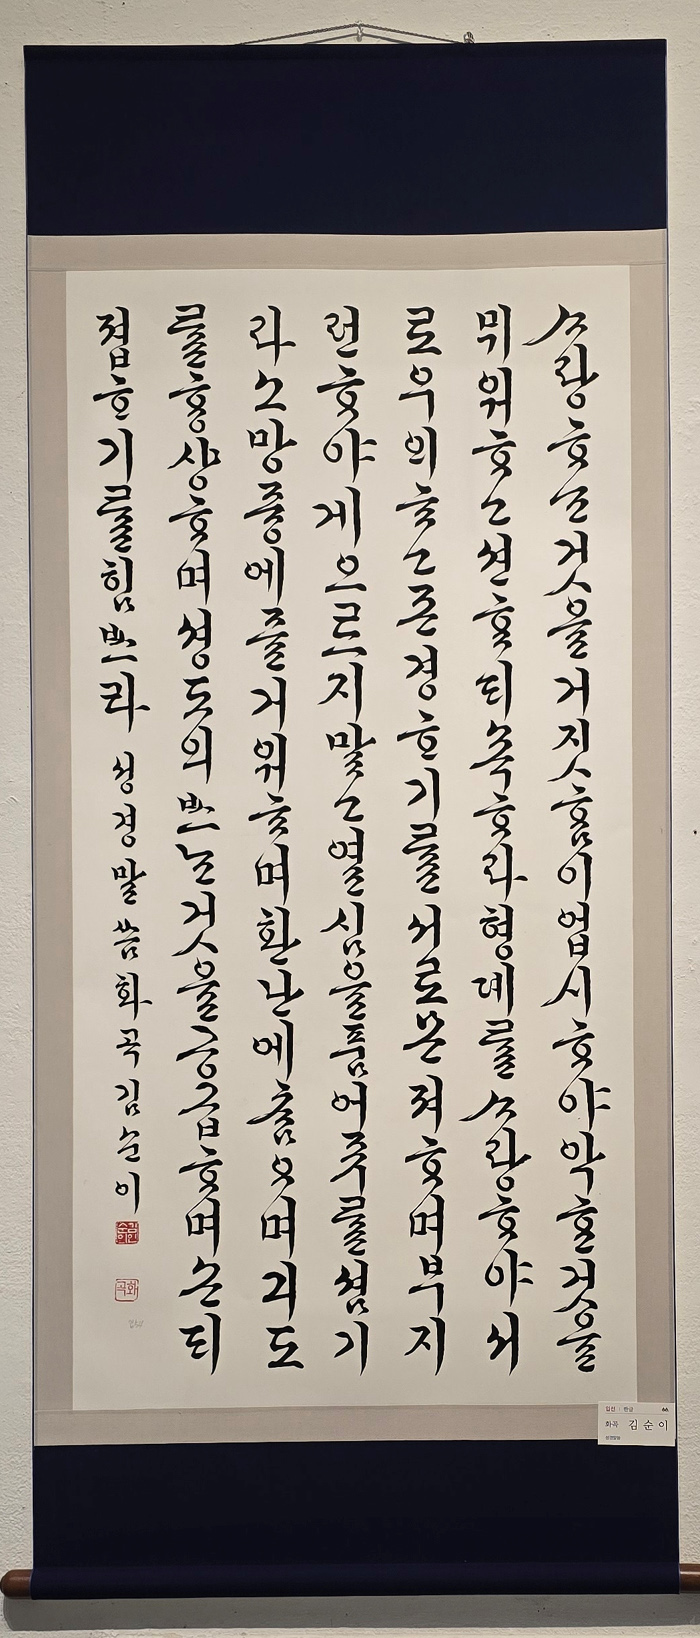 ᄉᆞ랑ᄒᆞᄂᆞᆫ것을거짓ᄒᆞᆷ이업시ᄒᆞ야악ᄒᆞᆫ것을
믜워ᄒᆞ고션ᄒᆞᆫᄃᆡ쇽ᄒᆞ라형뎨를ᄉᆞ랑ᄒᆞ야서
로우의ᄒᆞ고존경ᄒᆞ기를서로몬져ᄒᆞ며부지
런ᄒᆞ야게으르지말고열심을품어주를셤기
라소망즁에즐거워ᄒᆞ며환난에ᄎᆞᆷ으며긔도
를ᄒᆞᆼ샹ᄒᆞ며셩도의ᄡᅳ는것을공급ᄒᆞ며손ᄃᆡ
졉ᄒᆞ기를힘ᄡᅳ라 성경말씀 화곡 김순이
화곡
입선 한글 66
화곡 김순이
성경말씀